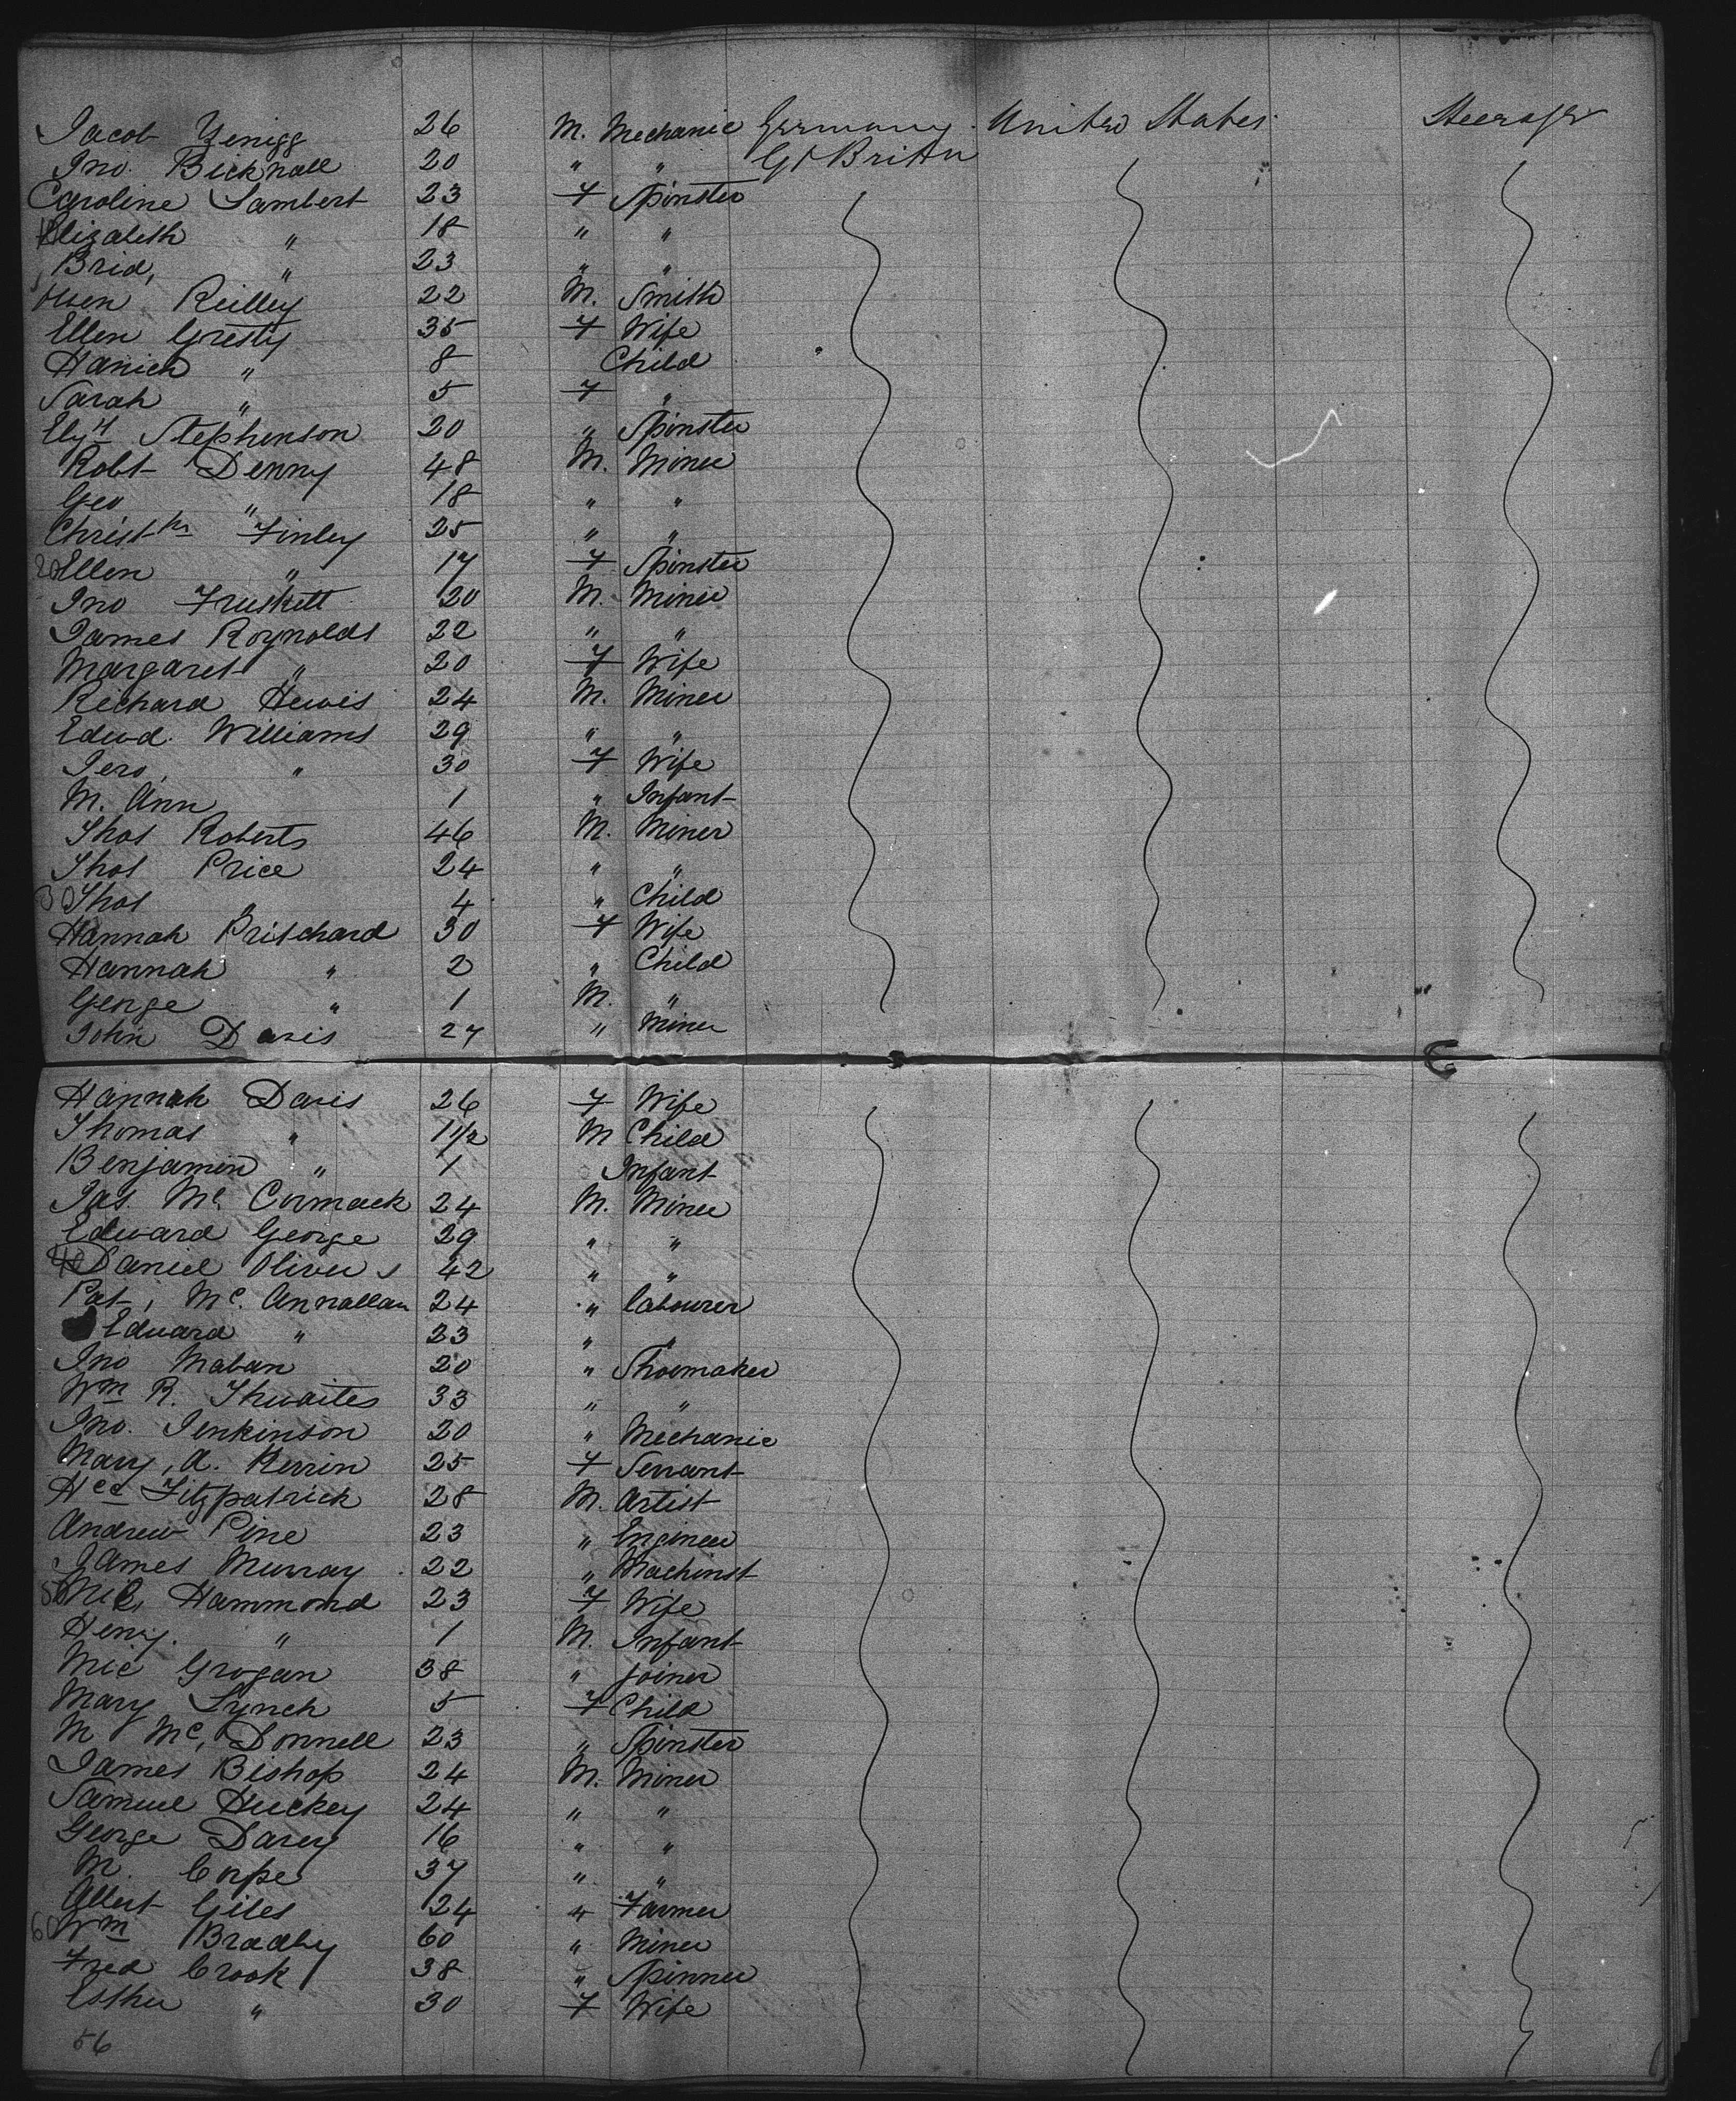 Jacob Yenigg 26 M. Mechanic Germany. United States. Steerage
Jno. Bicknall 20 " " Gt Brittn
Caroline Lambert 23 F Spinster
Elizabeth " 18 " "
Brid, " 23 " "
Reilley 22 M. Smith
Ellen Gresty 35 F Wife
" 8 Child
Sarah " 5 F "
Elizth Stephenson 20 " Spinster
Robt Denny 48 M. Miner
Geo " 18 " "
Christhr Finley 25 " "
20 Ellen " 17 F Spinster
Jno Fruskett 20 M. Miner
James Roynolds 22 " "
Margaret " 20 F Wife
Richard Hewis 24 M. Miner
Edwd. Williams 29 " "
" 30 F Wife
M. Ann 1 " Infant
Thos Roberts 46 M. Miner
Thos Price 24 " "
30 Thos " 4 " Child
Hannah Pritchard 30 F Wife
Hannah " 2 " Child
George " 1 M. "
John Davis 27 " Miner
Hannah Davis 26 F Wife
Thomas " 1 1/2 M Child
Benjamin " 1 Infant
Jas. Mc. Cormack 24 M. Miner
Edward George 29 " "
40 Daniel Olivers 42 " "
Pat, Mc. Annallan 24 " Labourer
Edward " 23 " "
Jno Maban 20 " Shoemaker
Wm R. Thwaites 33 " "
Jno. Jenkinson 20 " Mechanic
Mary, A. Kerrin 25 F Servant
Fitzpatrick 28 M. Artist
Andrew Pine 23 " Engineer
James Murray 22 " Machinst
50 Mic, Hammond 23 F Wife
Henry. " 1 M. Infant
Mic Grogan 38 " Joiner
Mary Lynch 5 F Child
M Mc, Donnell 23 " Spinster
James Bishop 24 M. Miner
Samuel Huckey 24 " "
George Darey 16 " "
M. Corpe 37 " "
Albert Giles 24 " Farmer
60 Wm Bradby 60 " Miner
Fred Crook 38 " Spinner
Esther " 30 F Wife
56